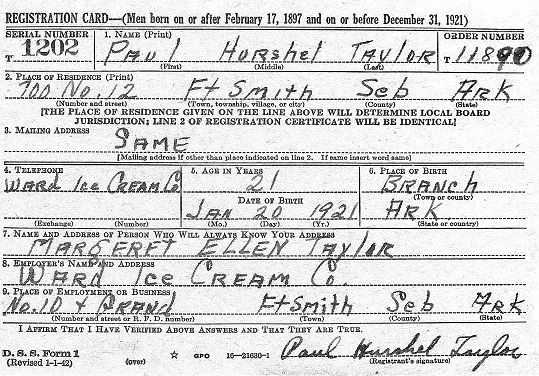 REGISTRATION CARD—(Men born on or after February 17, 1897 and on or before December 31, 1921)
SERIAL NUMBER 1. NAME (Print) ORDER NUMBER
T 1202 PAUL HURSHEL TAYLOR T 11890
(First) (Middle) (Last)
2. PLACE OF RESIDENCE (Print)
700 No. 12 Ft Smith Seb ARK
(Number and street) (Town, township, village, or city) (County) (State)
[THE PLACE OF RESIDENCE GIVEN ON THE LINE ABOVE WILL DETERMINE LOCAL BOARD
JURISDICTION; LINE 2 OF REGISTRATION CERTIFICATE WILL BE IDENTICAL]
3. MAILING ADDRESS
SAME
[Mailing address if other than place indicated on line 2. If same insert word same]
4. TELEPHONE 5. AGE IN YEARS 6. PLACE OF BIRTH
WARD ICE CREAM Co 21 BRANCH
DATE OF BIRTH (Town or county)
JAN 20 1921 ARK
(Exchange) (Number) (Mo.) (Day) (Yr.) (State or country)
7. NAME AND ADDRESS OF PERSON WHO WILL ALWAYS KNOW YOUR ADDRESS
MARGERET ELLEN TAYLOR
8. EMPLOYER'S NAME AND ADDRESS
WARD ICE CREAM Co.
9. PLACE OF EMPLOYMENT OR BUSINESS
No. 10 + GRAND Ft Smith Seb ARK
(Number and street or R. F. D. number) (Town) (County) (State)
I AFFIRM THAT I HAVE VERIFIED ABOVE ANSWERS AND THAT THEY ARE TRUE.
D. S. S. Form 1 Paul Hurshel Taylor
(Revised 1-1-42) (over) ☆ GPO 16—21630-1 (Registrant's signature)